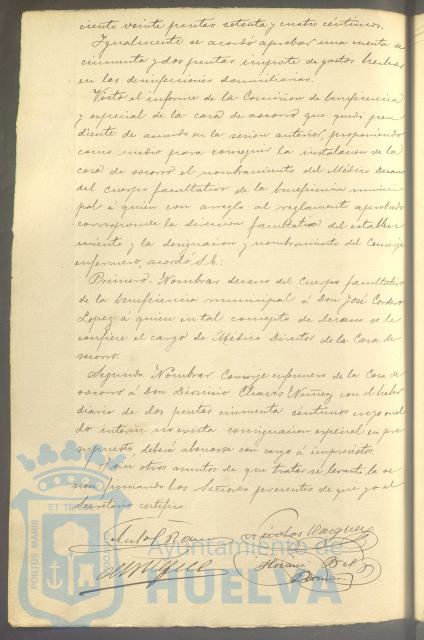 ciento veinte pesetas setenta y cuatro céntimos.
Igualmente se acordó aprobar una cuenta de
cincuenta y dos pesetas importe de gastos hechos
en las desinfecciones domiciliarias.
Visto el informe de la Comision de beneficencia
y especial de la casa de socorro que quedó pen
diente de acuerdo en la sesión anterior, proponiendo
como medio para conseguir la instalacion de la
casa de socorro el nombramiento del Médico Decano
del Cuerpo facultativo de la beneficencia munici
pal á quien con arreglo al reglamento aprobado
corresponde la direccion facultativa del estableci
miento y la designacion y nombramiento del Conserje
enfermero, acordó S.E.:
Primero. Nombrar decano del Cuerpo facultativo
de la beneficencia municipal á Don José Cordero
Lopez á quien en tal concepto de decano se le
confiere el cargo de Médico Director de la Casa de
socorro.
Segundo. Nombrar Conserje enfermero de la Casa de
socorro á Don Dionisio Nuñez con el haber
diario de dos pesetas cincuenta céntimos cuyo suel
do interin no exista consignacion especial en pre
supuesto, deberá abonarse con cargo á imprevistos.
Y sin otros asuntos de que tratar se levantó la se
sion, firmando los Señores presentes de que yo el
Secretario certifico.
Nicolas Vazquez
Ayuntamiento de
HUELVA
PORTUS MARIS
ET TERRAE